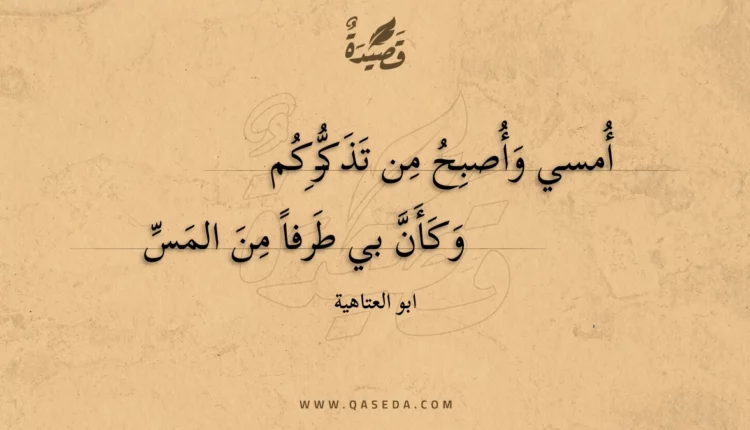 قَصِيْدَةٌ
أُمسي وَأُصبِحُ مِن تَذَكُّرِكُم
وَكَأَنَّ بي طَرفاً مِنَ المَسِّ
ابو العتاهية
WWW.QASEDA.COM